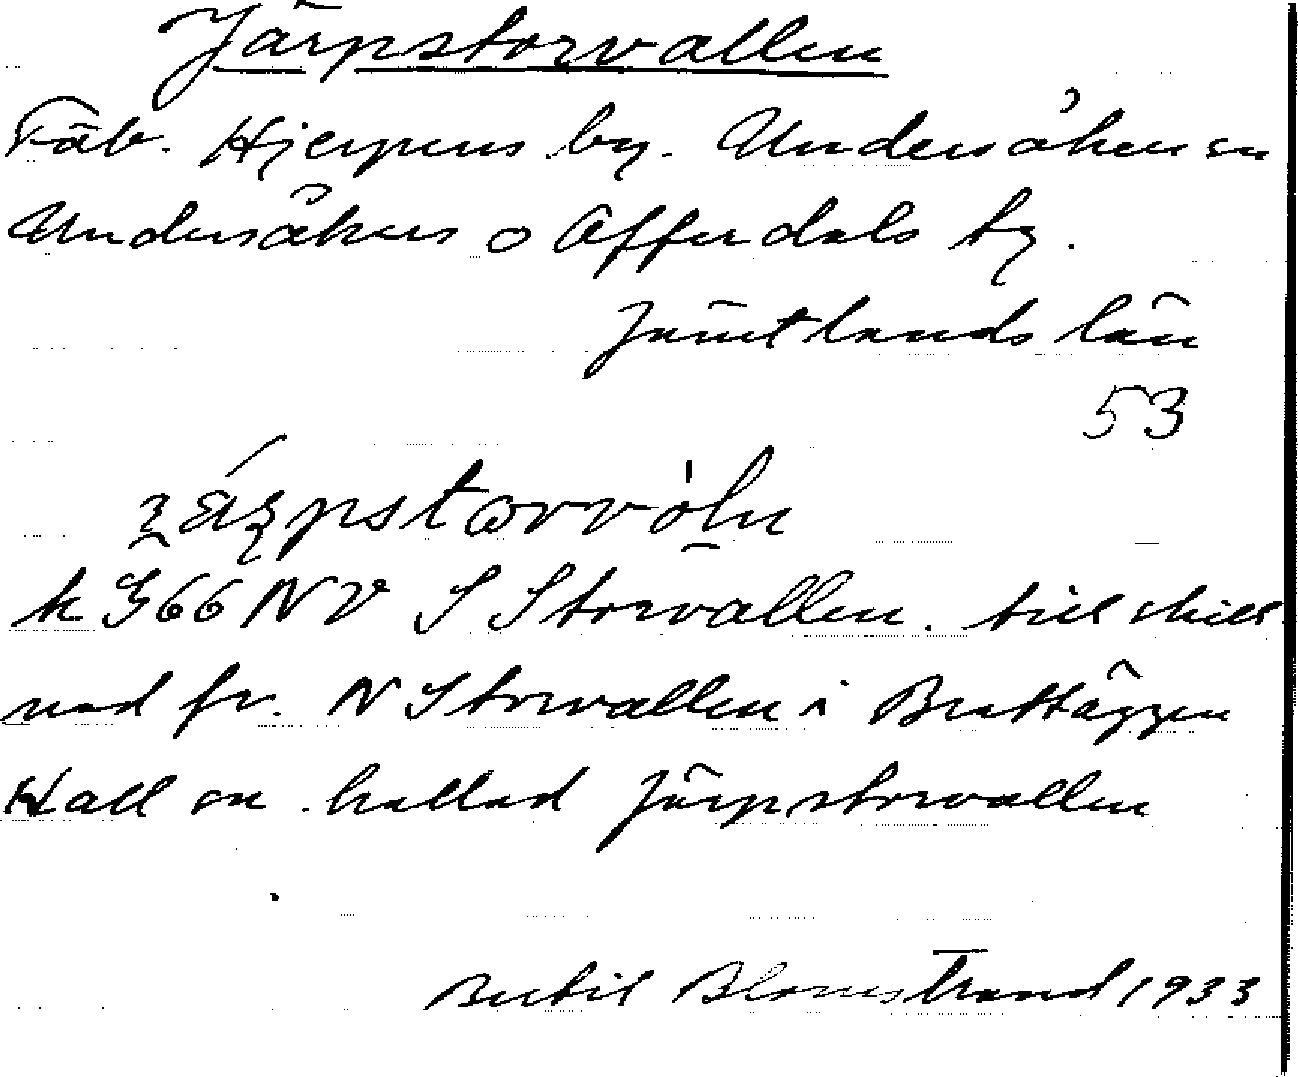 Järpstorvallen
Fäb. Hjerpens by. Undersåkers sn
Undersåkers o Offerdals tg.
Jämtlands län
53
k 366 NV S Storvallen. till skill
nad fr. N Storvallen i Brattäggen
Kall sn. kallad Järpstorvallen
Bertil Blomstrand 1933